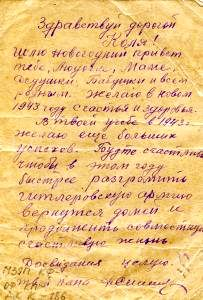 Здравствуй дорогой
Коля!
Шлю новогодний привет
тебе, Людочке, Маме,
Дедушке, Бабушке и всем
родным. Желаю в новом
1943 году счастья и здоровья.
В твоей учебе в 1943-
желаю еще больших
успехов. Будте счастливы
чтобы в этом году
быстрее разгромить
гитлеровскую армию
вернутся домой и
продолжить совместную
счастливую жизнь
Досвидания целую.
папа